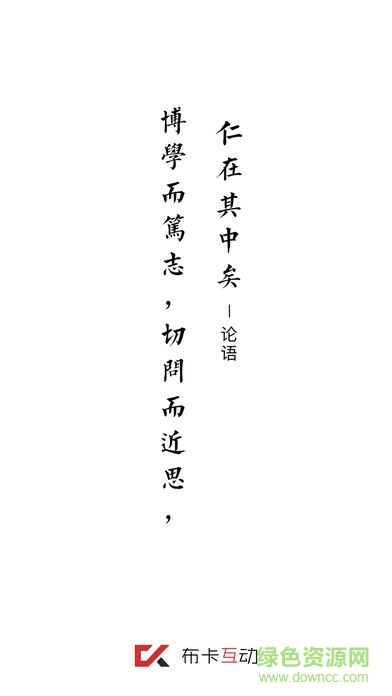 博學而篤志，切問而近思，
仁在其中矣
—论语
布卡互动
绿色资源网
www.downcc.com